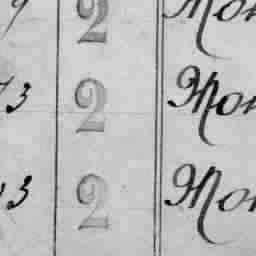 9 2 Mon
73 2 Mon
3 2 Mon